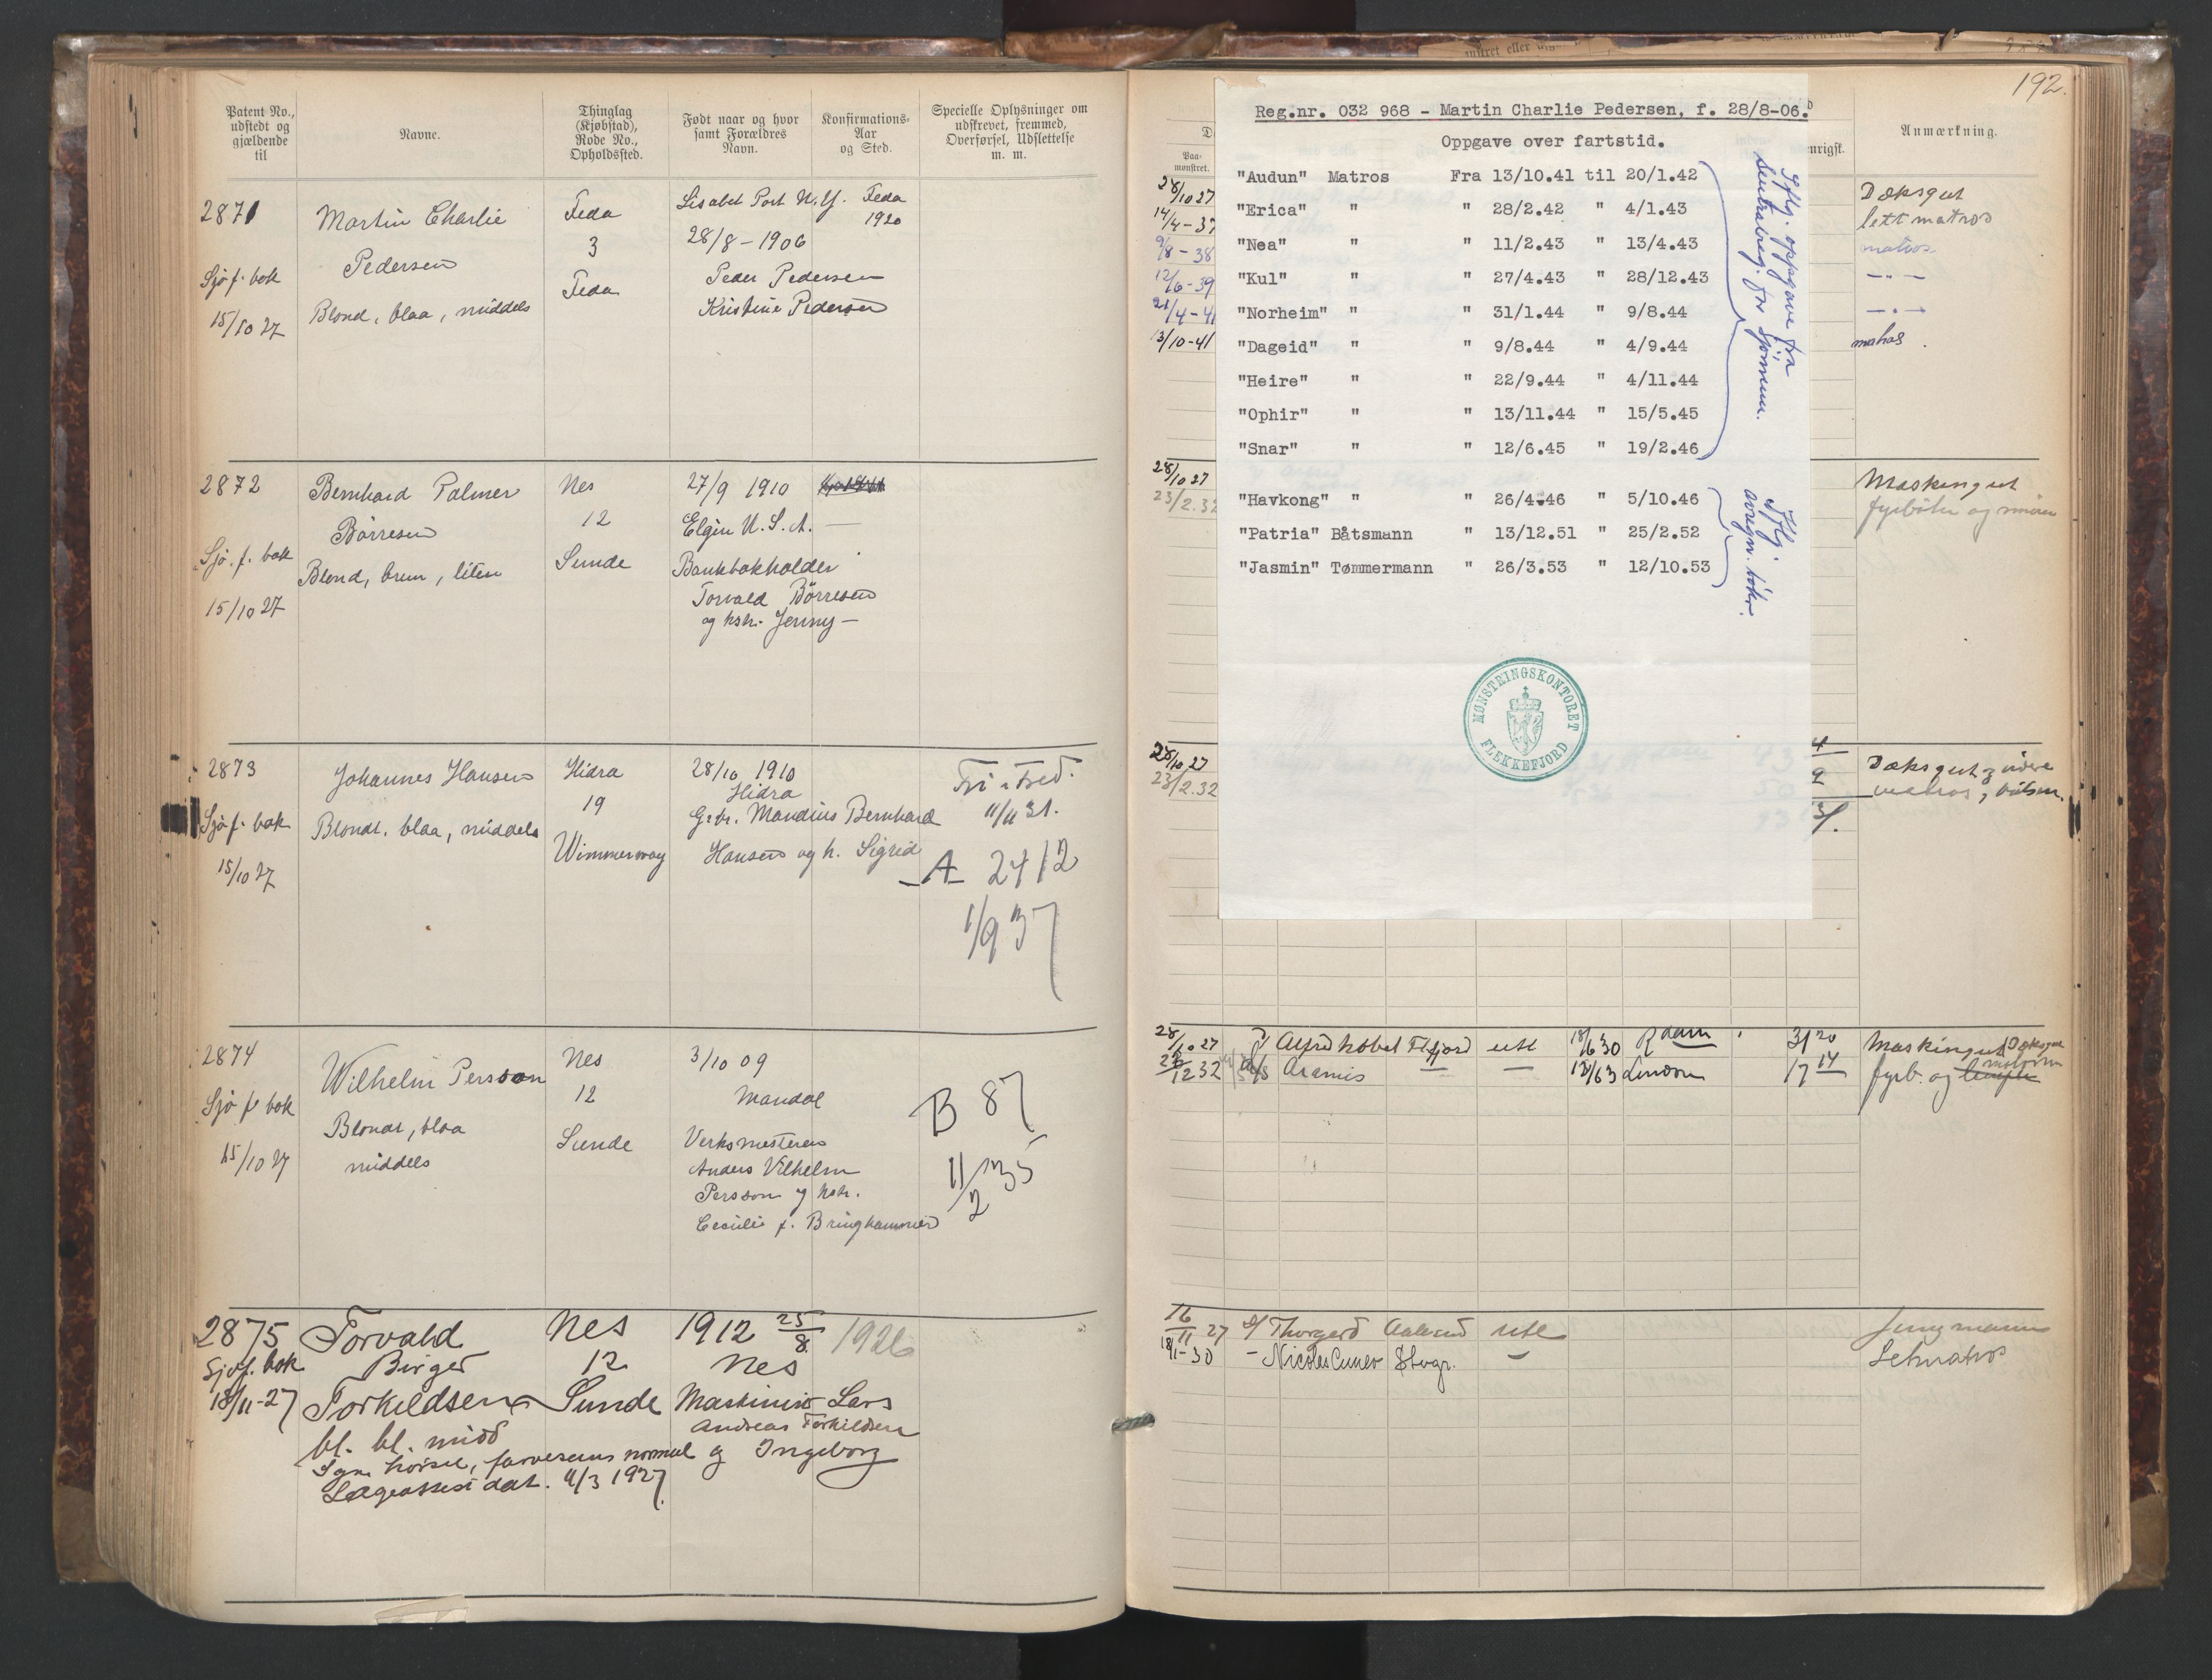 Patent No., udstedt og gjældende til
Navne.
Thinglag (Kjøbstad), Rode No., Opholdssted.
Født naar og hvor samt Forældres Navn.
Konfirmations-Aar og Sted.
Specielle Oplysninger om udskrevet, fremmed, Overførsel, Udslettelse m. m.
2871
Sjøf. bok
15/10 27
Martin Charlie
Pedersen
Blond, blaa, middels
Feda
3
Feda
Lisabet Port N.Y.
28/8 - 1906
Peder Pedersen
Kristine Pedersen
Feda
1920
2872
Sjø. f. bok
15/10 27
Bernhard Palmer
Børresen
Blond, brun, liten
Nes
12
Sunde
27/9 1910
Elgin U.S.A. —
Bankbokholder
Torvald Børresen
og hstr. Jenny —
2873
Sjøf. bok
15/10 27
Johannes Hansen
Blondt, blaa, middels
Hidra
19
28/10 1910
Hidra
Gbr. Mandius Bernhard
Hansen og h. Sigrid
11/11 31.
A 2412
1/9 37
2874
Sjø f. bok
15/10 27
Wilhelm Persson
Blondt, blaa
middels
Nes
12
Sunde
3/10 09
Mandal
Verksmesteren
Anders Vilhelm
Persson og hstr.
Cecilie f. Bringhammer
B 87
11/2 35
2875
Sjøf. bok
18/11-27
Torvald
Birger
Torkildsen
bl. bl. midd
Syn, hørsel, farvesans normal
Lægeattest dat. 4/3 1927.
Nes
12
Sunde
1912 25/8
Nes
Maskinist Lars
Andreas Torkildsen
og Ingeborg
1926
192.
Paa-mønstret.
Anmærkning.
Reg.nr. 032 968 - Martin Charlie Pedersen, f. 28/8-06.
Oppgave over fartstid.
"Audun" Matros Fra 13/10.41 til 20/1.42
"Erica" " " 28/2.42 " 4/1.43
"Nea" " " 11/2.43 " 13/4.43
"Kul" " " 27/4.43 " 28/12.43
"Norheim" " " 31/1.44 " 9/8.44
"Dageid" " " 9/8.44 " 4/9.44
"Heire" " " 22/9.44 " 4/11.44
"Ophir" " " 13/11.44 " 15/5.45
"Snar" " " 12/6.45 " 19/2.46
"Havkong" " " 26/4.46 " 5/10.46
"Patria" Båtsmann " 13/12.51 " 25/2.52
"Jasmin" Tømmermann " 26/3.53 " 12/10.53
Iflg. oppgave fra
Sentralreg. for sjømenn.
Iflg.
avregn. bøker.
MØNSTRINGSKONTORET
FLEKKEFJORD
28/10 27
14/4-37
9/8-38
12/6-39
21/4-41
13/10-41
Dæksgut
lettmatros
matros
— " —
— " —
matros.
28/10 27
23/2.32
Maskingut
fyrbøter og smører
28/10 27
23/2.32
Dæksgut
matros, båtsm.
28/10 27 Alfred Nobel Fl.fjord utl 18/6 30 R.dam 3/20
Aramis — — London 17 14
Maskingut
fyrb. og
16/11 27 Thorgerd Aalesund utl
18/1-30 — Nicolas Cuneo Hvgr. —
Jungmann
Letmatros